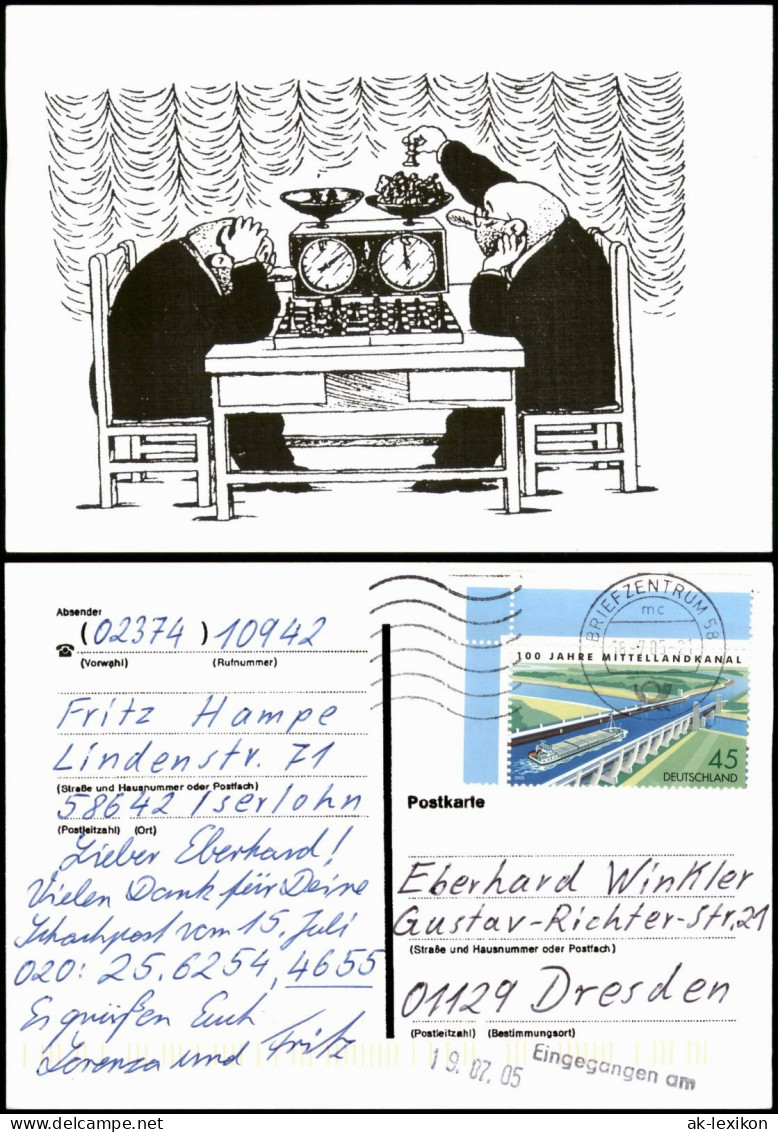 Absender
(02374) 10942
(Vorwahl) (Rufnummer)
Fritz Hampe
Lindenstr. 71
(Straße und Hausnummer oder Postfach)
58642 Iserlohn
(Postleitzahl) (Ort)
Lieber Eberhard!
Vielen Dank für Deine
Schachpost vom 15. Juli
020: 25. 6254, 4655
Es grüßen Euch
Lorenza und Fritz
BRIEFZENTRUM 58
mc
18.-7.05-21
100 JAHRE MITTELLANDKANAL
45
DEUTSCHLAND
Postkarte
Eberhard Winkler
Gustav-Richter-Str. 21
(Straße und Hausnummer oder Postfach)
01129 Dresden
(Postleitzahl) (Bestimmungsort)
19. 07. 05 Eingegangen am
ak-lexikon.com